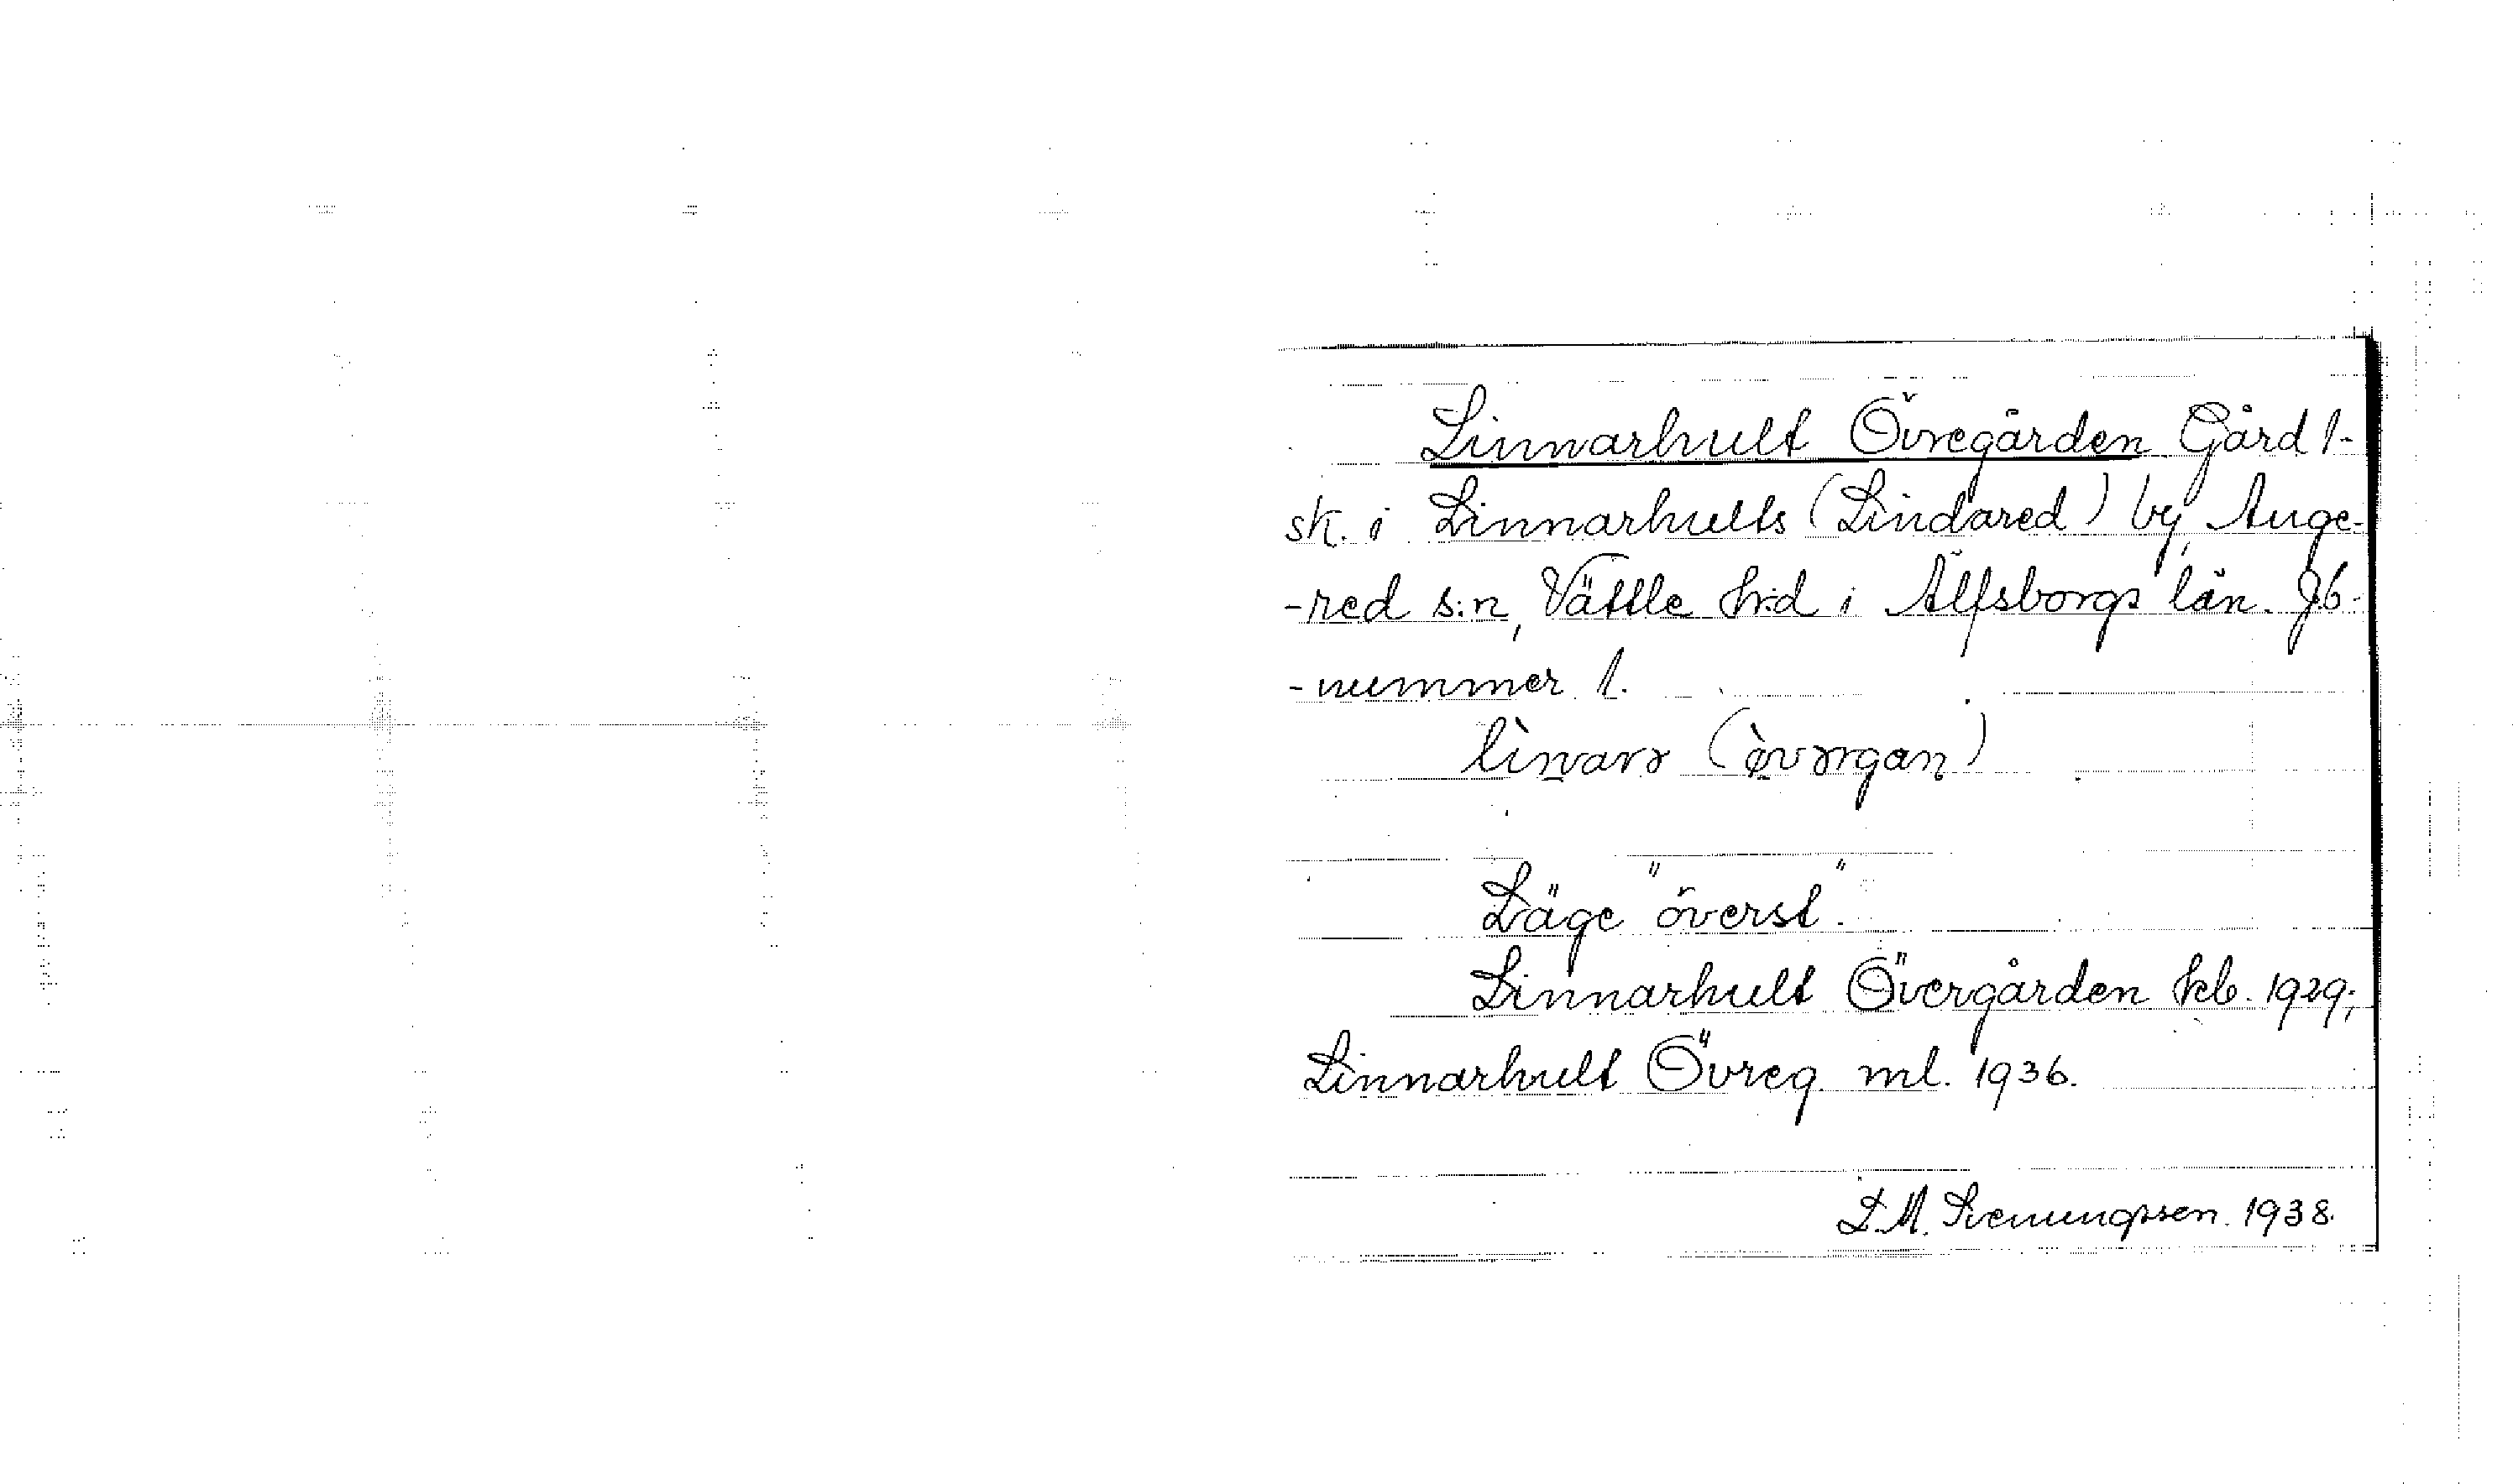 Linnarhult Övregården Gård 1-
sk. i Linnarhults (Lindared) by, Ange-
-red s:n, Vättle hd i Älfsborgs län. Jb-
-nummer 1.
Läge "överst".
Linnarhult Övergården kb. 1929;
Linnarhult Övreg. ml. 1936.
L.M. Svenungsson. 1938.